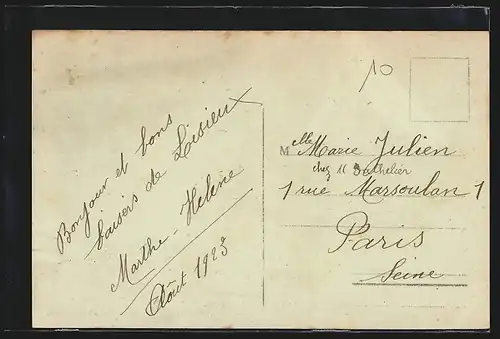 Bonjour et bons
baisers de Lisieux
Marthe - Helene
Août 1923
10
Melle Marie Julien
chez M
1 rue Marsoulan 1
Paris
Seine